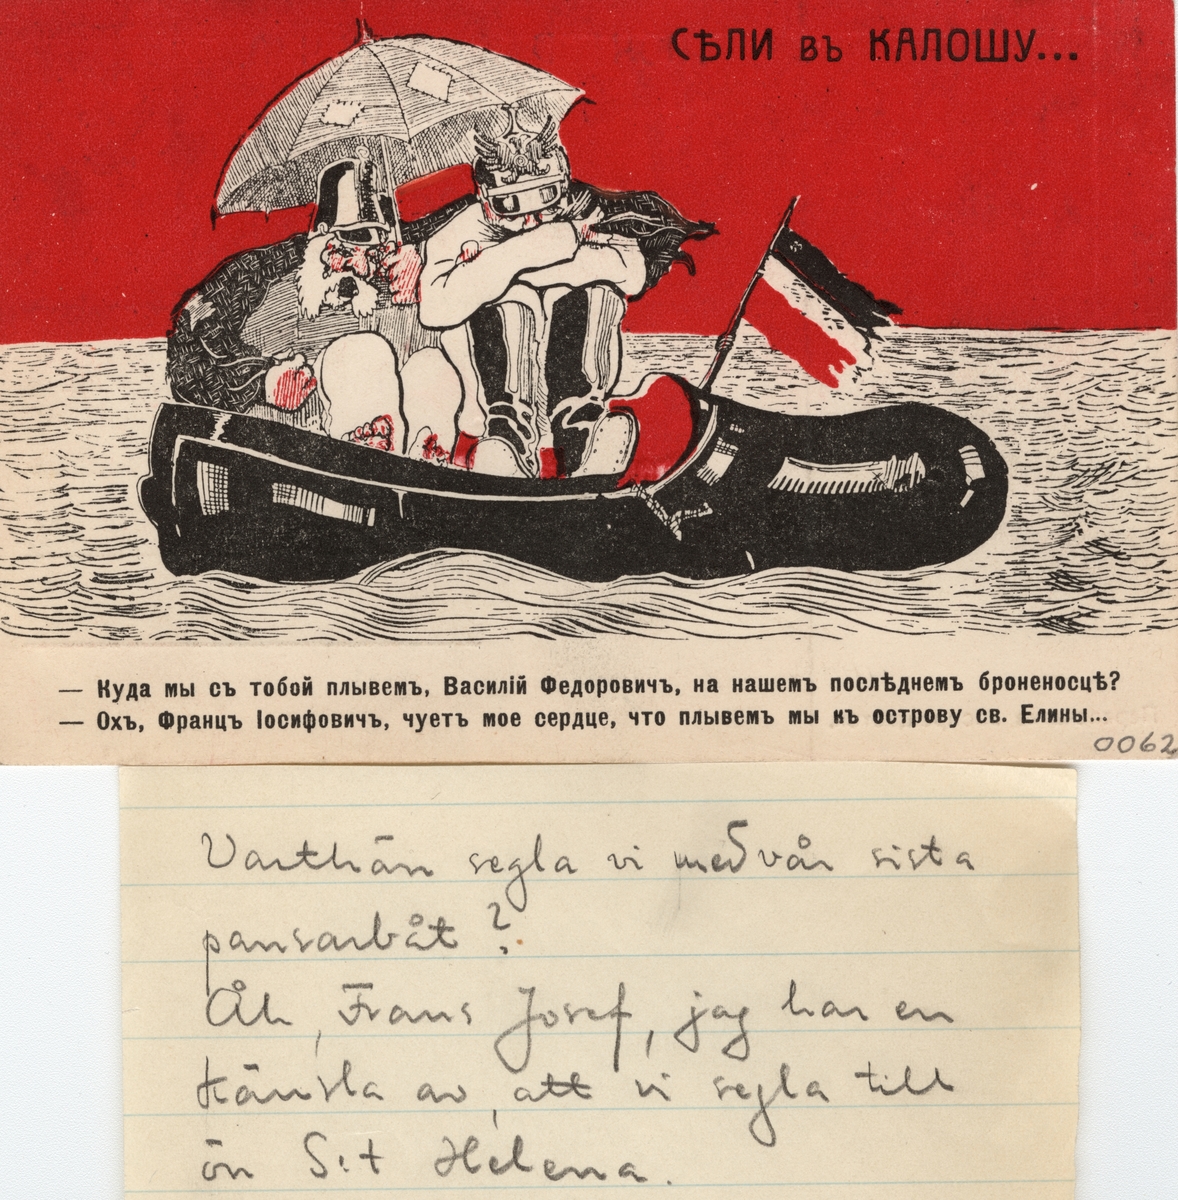 СѢЛИ въ КАЛОШУ...
— Куда мы съ тобой плывемъ, Василій Федоровичъ, на нашемъ послѣднемъ броненосцѣ?
— Охъ, Францъ Іосифовичъ, чуетъ мое сердце, что плывемъ мы къ острову св. Елины...
0062
Varthän segla vi med vår sista
pansarbåt?
Åh, Frans Josef, jag har en
känsla av, att vi segla till
ön S:t Helena.